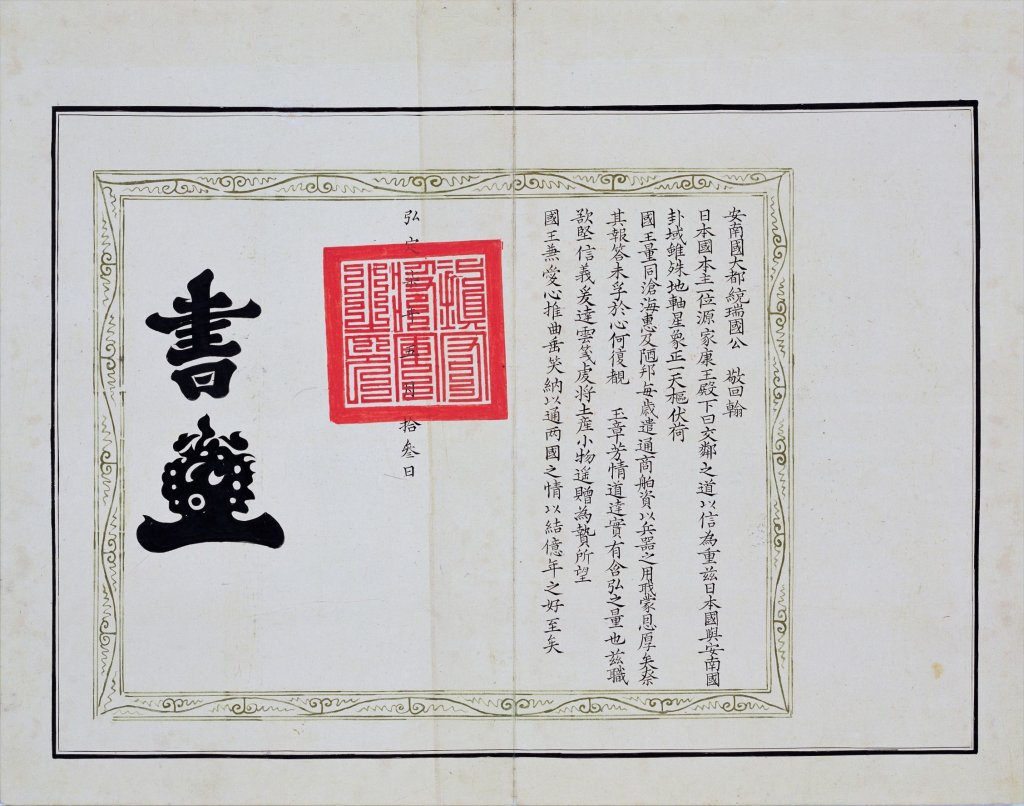 安南國大都統瑞國公　敬回翰
日本國本主一位源家康王殿下曰交鄰之道以信為重兹日本國與安南國
卦域雖殊地軸星象正一天樞伏荷
國王量同滄海惠及陋邦每歲遣通商舶資以兵器之用職蒙恩厚矣奈
其報答未孚於心何復覩　王章芳情道達實有含弘之量也兹職
欲堅信義爰達雲箋虔將土産小物遙贈為贄所望
國王兼愛心推曲垂笑納以通两國之情以結億年之好至矣
弘定柒年五月拾叁日
書